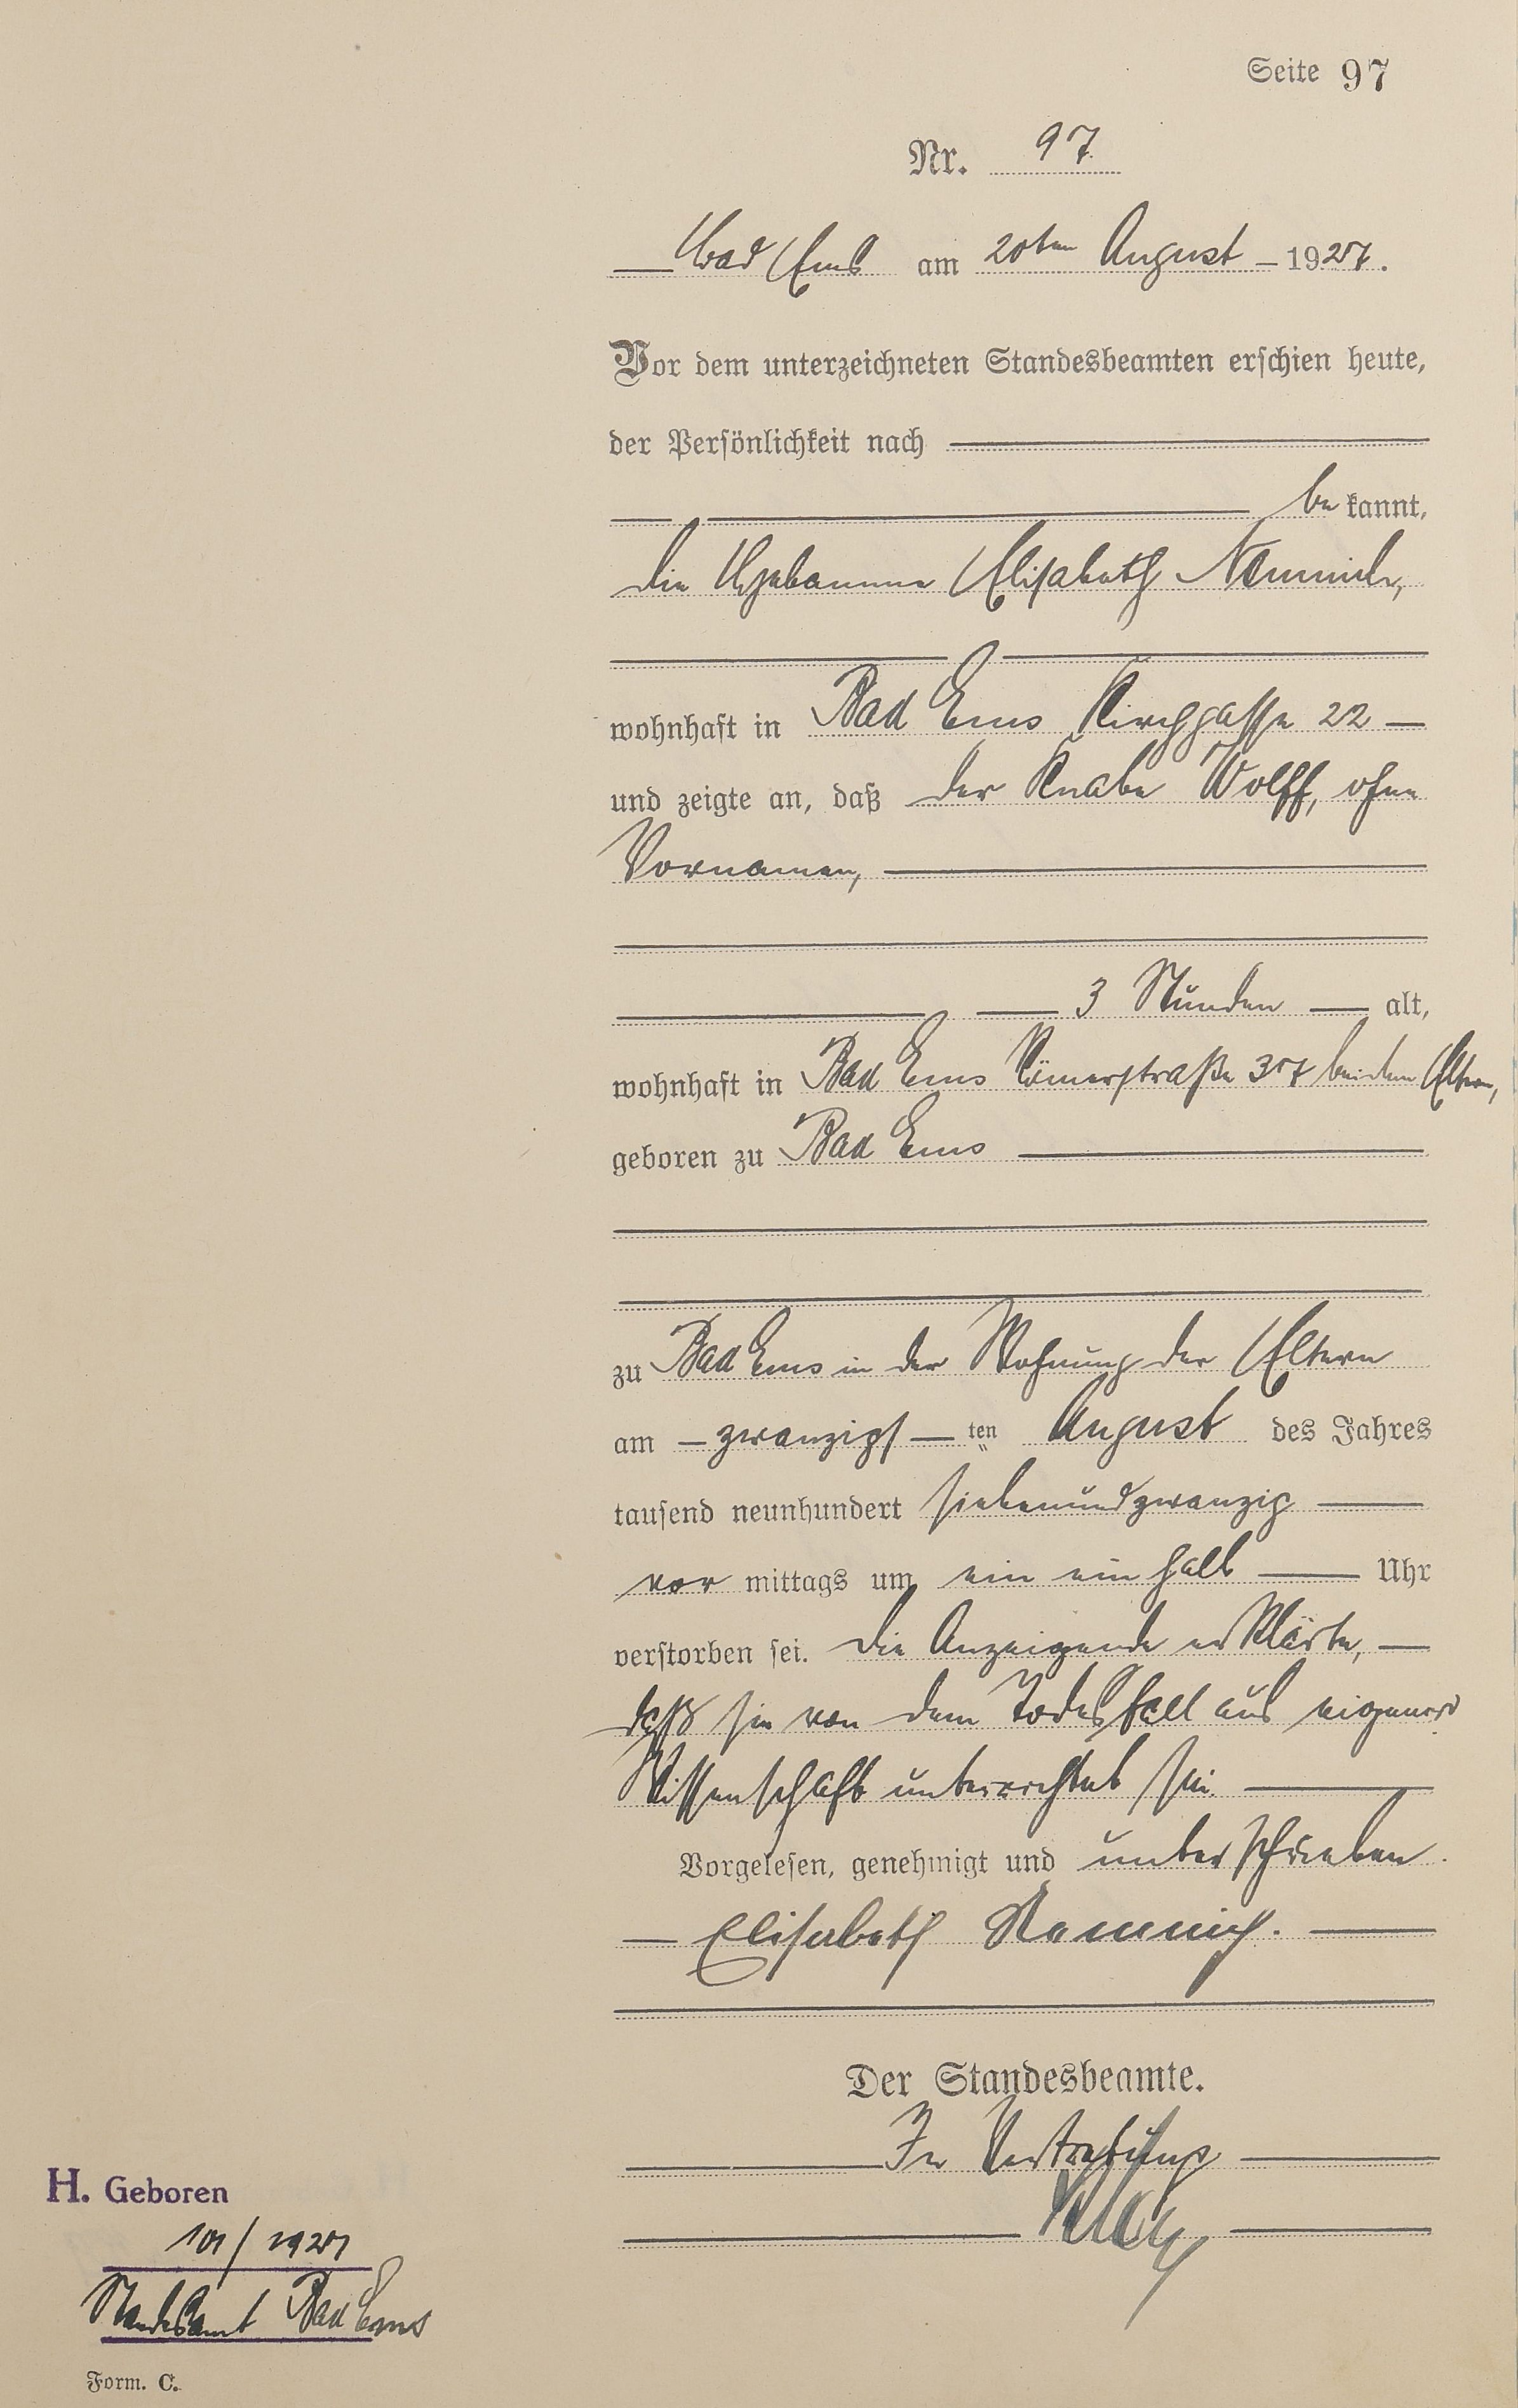 Seite 97
Nr. 97
Bad Ems am 20ten August 1927.
Vor dem unterzeichneten Standesbeamten erschien heute,
der Persönlichkeit nach
be kannt,
die Hebamme Elisabeth Nemnich,
wohnhaft in Bad Ems Kirchgasse 22
und zeigte an, daß der Knabe Wolff, ohne
Vornamen,
3 Stunden alt,
wohnhaft in Bad Ems Römerstraße 37 bei den Eltern,
geboren zu Bad Ems
zu Bad Ems in der Wohnung der Eltern
am zwanzigs ten August des Jahres
tausend neunhundert siebenundzwanzig
vor mittags um ein ein halb Uhr
verstorben sei. Die Anzeigende erklärte,
daß sie von dem Todesfall aus eigener
Wissenschaft unterrichtet sei.
Vorgelesen, genehmigt und unterschrieben.
Elisabeth Nemnich.
Der Standesbeamte.
In Vertretung
H. Geboren
101/1927
Standesamt Bad Ems
Form. C.